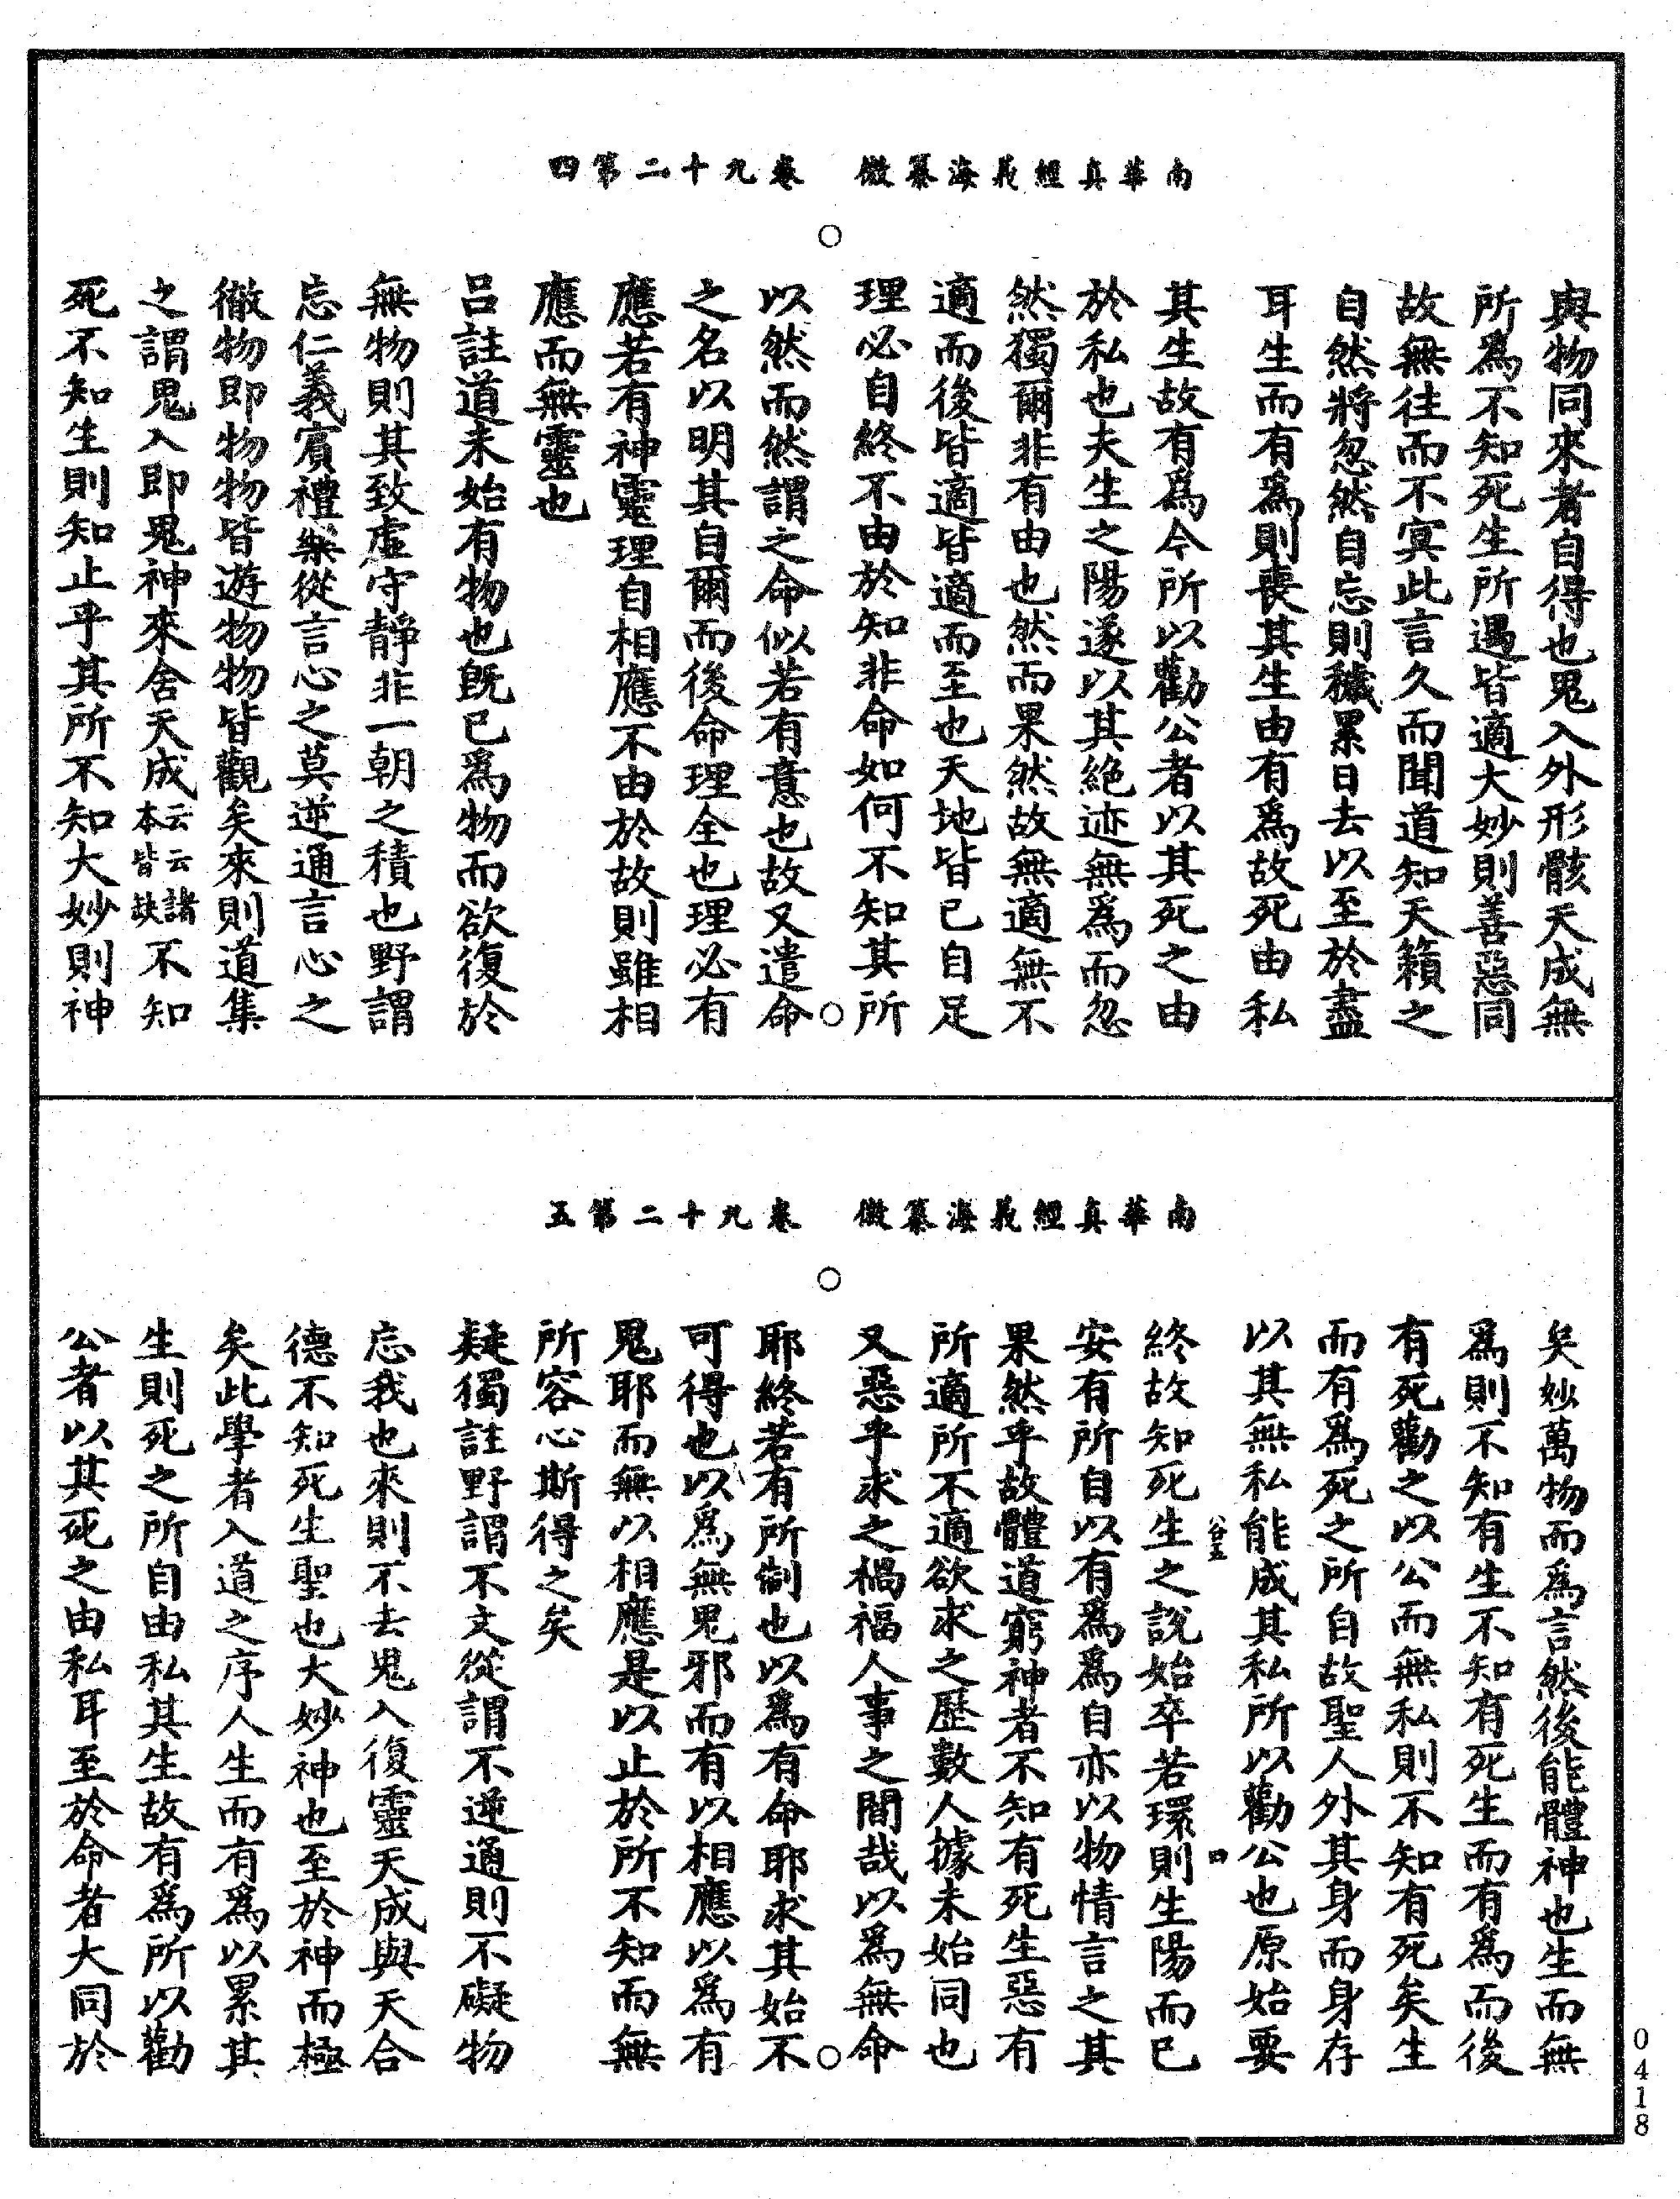 南華真經義海纂微　卷九十二第四
與物同來者自得也鬼入外形骸天成無
所爲不知死生所遇皆適大妙則善惡同
故無往而不冥此言久而聞道知天籟之
自然將忽然自忘則穢累日去以至於盡
耳生而有爲則喪其生由有爲故死由私
其生故有爲今所以勸公者以其死之由
於私也夫生之陽遂以其絶迹無爲而忽
然獨爾非有由也然而果然故無適無不
適而後皆適皆適而至也天地皆已自足
理必自終不由於知非命如何不知其所
以然而然謂之命似若有意也故又遣命
之名以明其自爾而後命理全也理必有
應若有神靈理自相應不由於故則雖相
應而無靈也
吕註道未始有物也既已爲物而欲復於
無物則其致虛守靜非一朝之積也野謂
忘仁義賓禮樂從言心之莫逆通言心之
徹物即物物皆遊物物皆觀矣來則道集
之謂鬼入即鬼神來舍天成云云諸本皆缺不知
死不知生則知止乎其所不知大妙則神
南華真經義海纂微　卷九十二第五
矣妙萬物而爲言然後能體神也生而無
爲則不知有生不知有死生而有爲而後
有死勸之以公而無私則不知有死矣生
而有爲死之所自故聖人外其身而身存
以其無私能成其私所以勸公也原始要
終故知死生之說始卒若環則生陽而已
安有所自以有爲爲自亦以物情言之其
果然乎故體道窮神者不知有死生惡有
所適所不適欲求之歷數人據未始同也
又惡乎求之禍福人事之間哉以爲無命
耶終若有所制也以爲有命耶求其始不
可得也以爲無鬼邪而有以相應以爲有
鬼耶而無以相應是以止於所不知而無
所容心斯得之矣
疑獨註野謂不文從謂不逆通則不礙物
忘我也來則不去鬼入復靈天成與天合
德不知死生聖也大妙神也至於神而極
矣此學者入道之序人生而有爲以累其
生則死之所自由私其生故有爲所以勸
公者以其死之由私耳至於命者大同於
0418